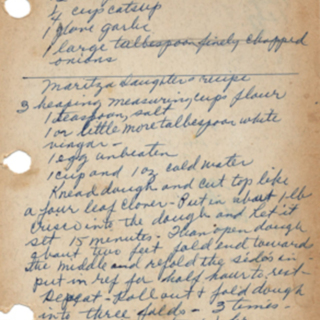 1/4 cup catsup
1 glove garlic
1 large talbespoon finely chopped
onions
Maritza Daughters recipe
3 heaping measuring cups flour
1 teaspoon salt
1 or little more talbespoon white
vinagar -
1 egg unbeaten
1 cup and 1 oz cold water
Knead dough and cut top like
a four leaf clover - Put in about 1 lb
Crisco into the dough and let it
sit 15 minutes - Than open dough
about two feet fold end toward
the middle and refold the sides in
put in ref for half hour to rest -
Repeat - Roll out & fold dough
into three folds - 3 times -